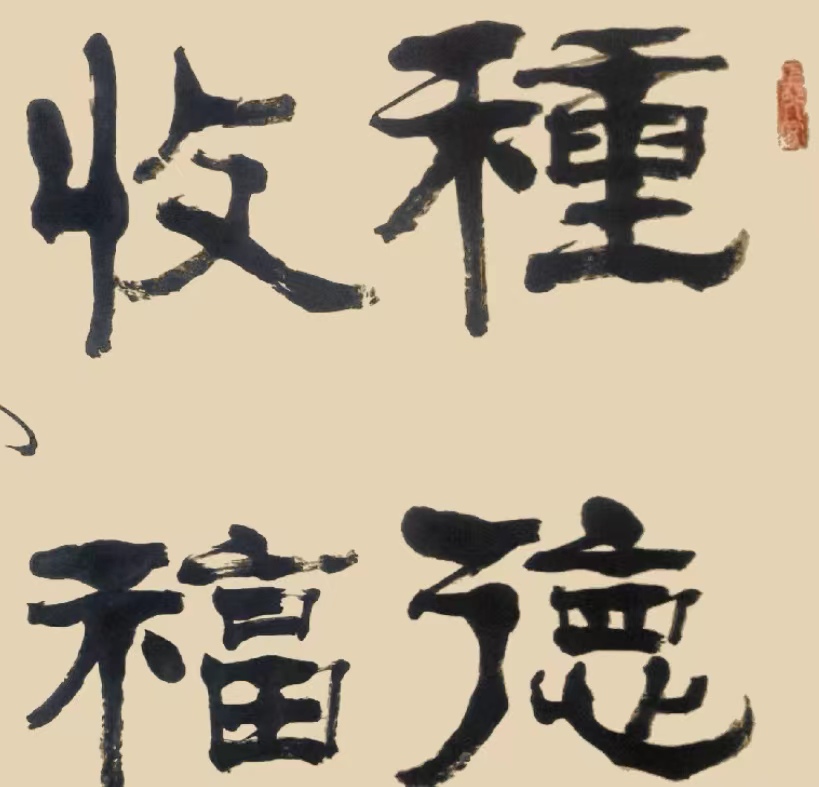 種德
收福